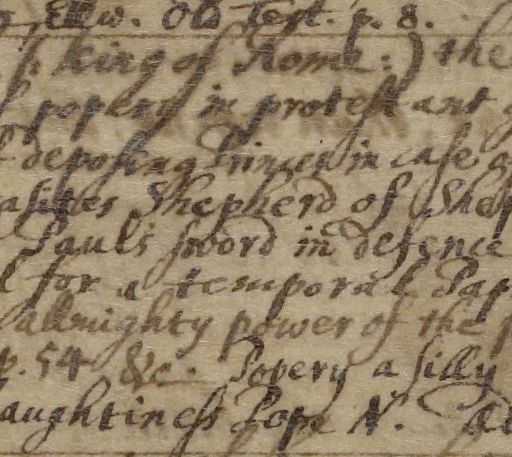 Edw. Ob Test. p. 8.
king of Rome:) the
popery in protestant
deposing Princes in case
Shepherd of Shep
Pauls sword in defence
for a temporal Pap
allmighty power of the
p. 54 &c. Popery a silly
aughtiness Pope N.